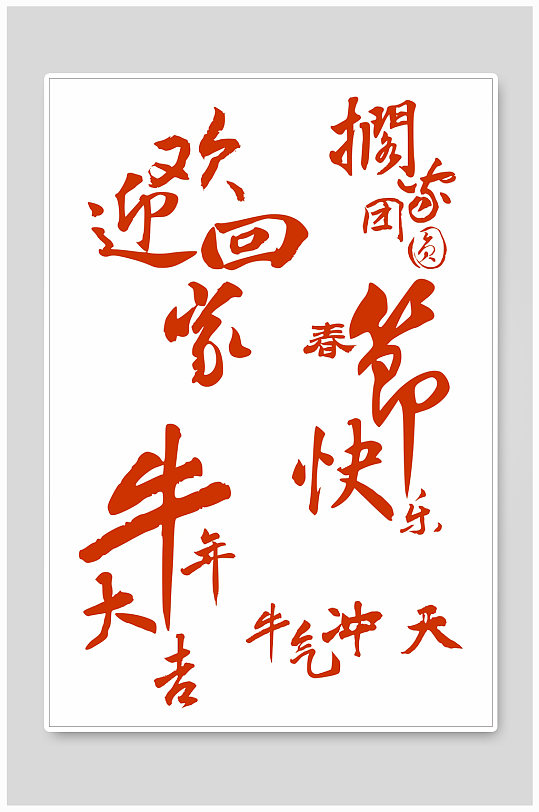 欢迎回家
搁家团圆
春節快乐
牛年大吉
牛气冲天